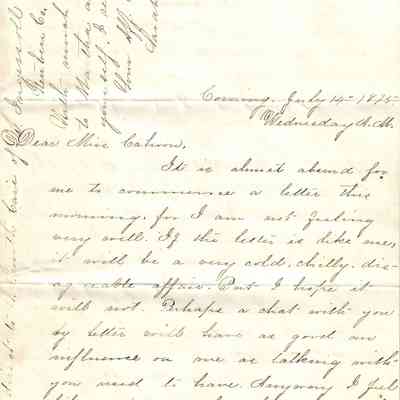 Corning, July 14th 1875.
Wednesday A.M.
Dear Miss Calvon,
It is almost absurd for
me to commence a letter this
morning, for I am not feeling
very well. If the letter is like me,
it will be a very cold, chilly, dis-
agreeable affair. But I hope it
will not. Perhaps a chat with you
by letter will have as good an
influence on me as talking with
you used to have. Anyway I feel
Care of
Ingersoll
Steuben Co.
With much
to Martha
yourself, I
Your aff